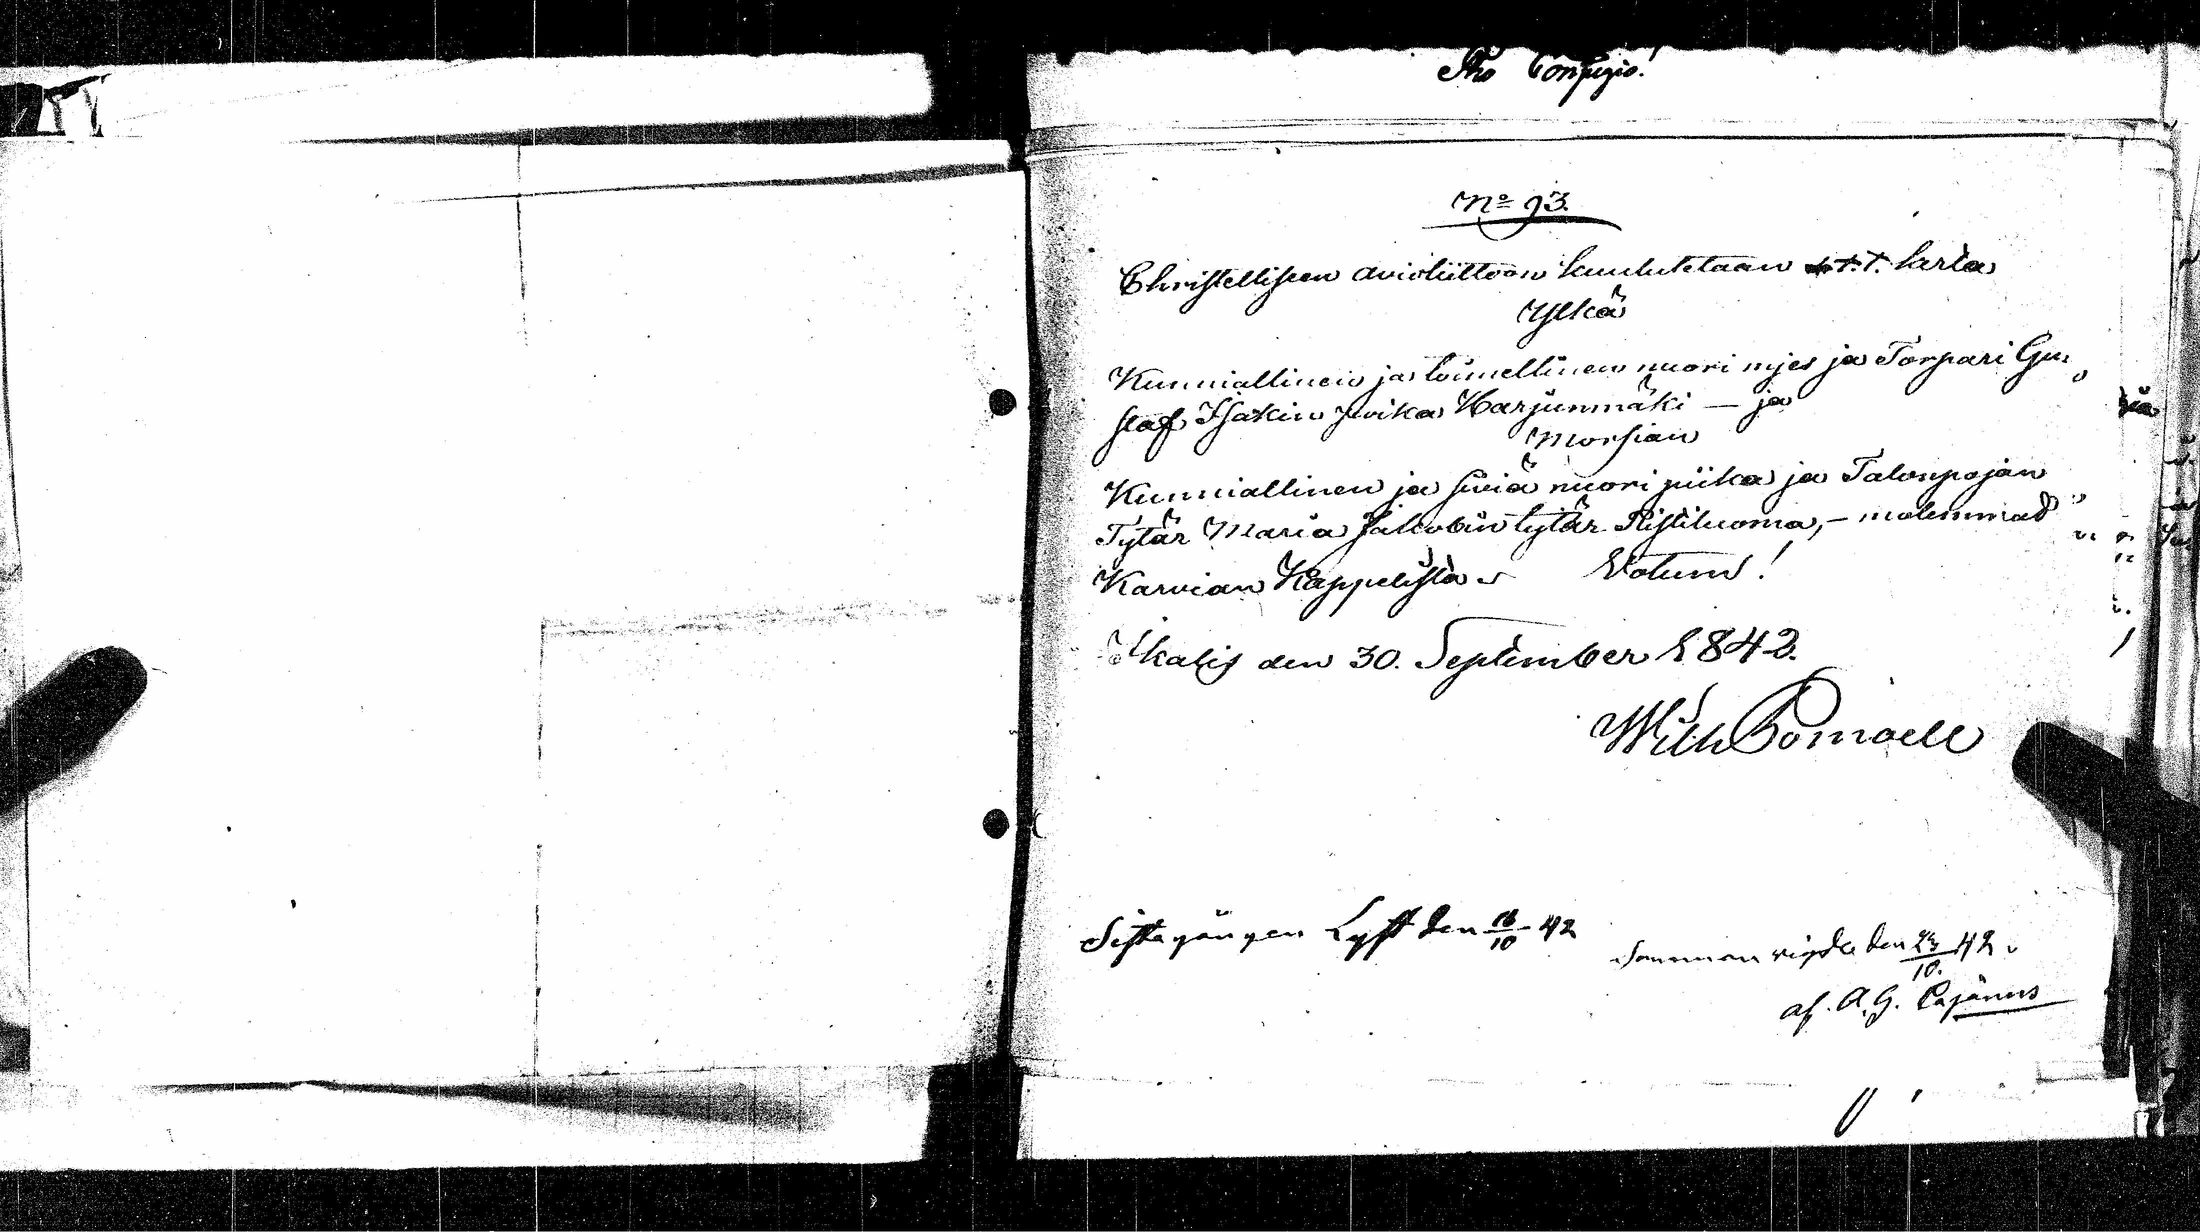 Pro Copujio!
No 93.
Christellisen avioliittoon kuulutetaan t. T. kerta
Ylkä
Kunniallinen ja toimellinen nuori mjes ja Torpari Gu„
staf Isakin poika Harjunmäki — ja
Morsian
Kunniallinen ja siviä nuori piika ja Talonpojan
Tytär Maria Jakobin tytär Ristiluoma, — molemmad
Karvian Kappelista Votum!
Ikalis den 30. September 1842.
Wilh Pomoell
Sista gången Lyst den 16/10 42
Samman vigde den 23/10. 42.
af. A. G. Pajänus